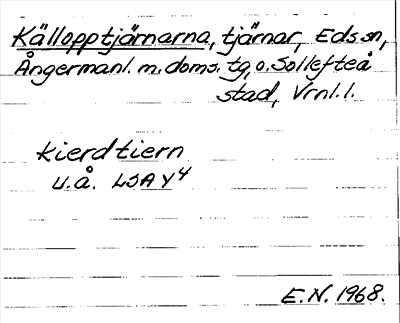 Källopptjärnarna, tjärnar, Eds sn,
Ångermanl. m. doms. tg, o. Sollefteå
stad, Vrnl. l.
kierdtiern
u.å. LSA Y4
E.N. 1968.